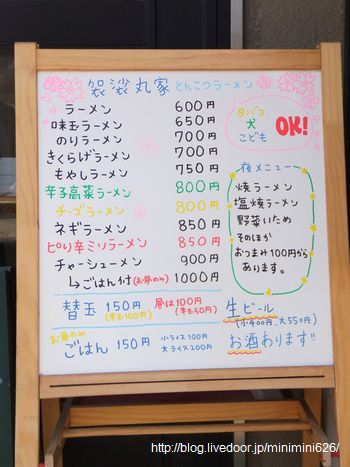 袋袋丸家 とんこつラーメン
ラーメン 600円
味玉ラーメン 650円
のりラーメン 700円
きくらげラーメン 700円
もやしラーメン 750円
辛子高菜ラーメン 800円
チーズラーメン 800円
ネギラーメン 850円
ピリ辛ミソラーメン 850円
チャーシューメン 900円
↳ごはん付(お昼のみ) 1000円
タバコ
犬
こども
OK!
夜メニュー
焼ラーメン
塩焼ラーメン
野菜いため
そのほか
おつまみ100円から
あります。
替玉 150円 (半玉100円) 昼は100円 (半玉50円)
お昼のみ
ごはん 150円 小ライス100円
大ライス200円
生ビール
(小400円、大550円)
お酒あります!!
http://blog.livedoor.jp/minimini626/